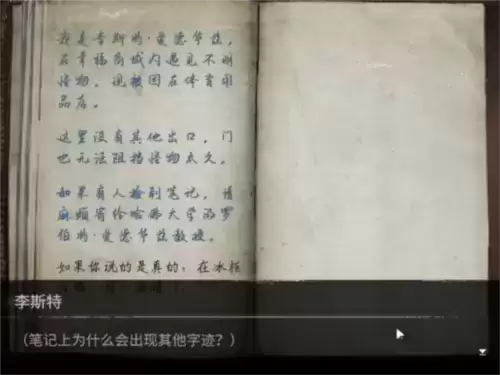 我是李斯特·爱德华兹，
在幸福商城内遇见不明
怪物，现被困在体育用
品店。
这里没有其他出口，门
也无法阻挡怪物太久。
如果有人捡到笔记，请
麻烦寄给哈佛大学的罗
伯特·爱德华兹教授。
如果你说的是真的：在水柜
李斯特
（笔记上为什么会出现其他字迹？）